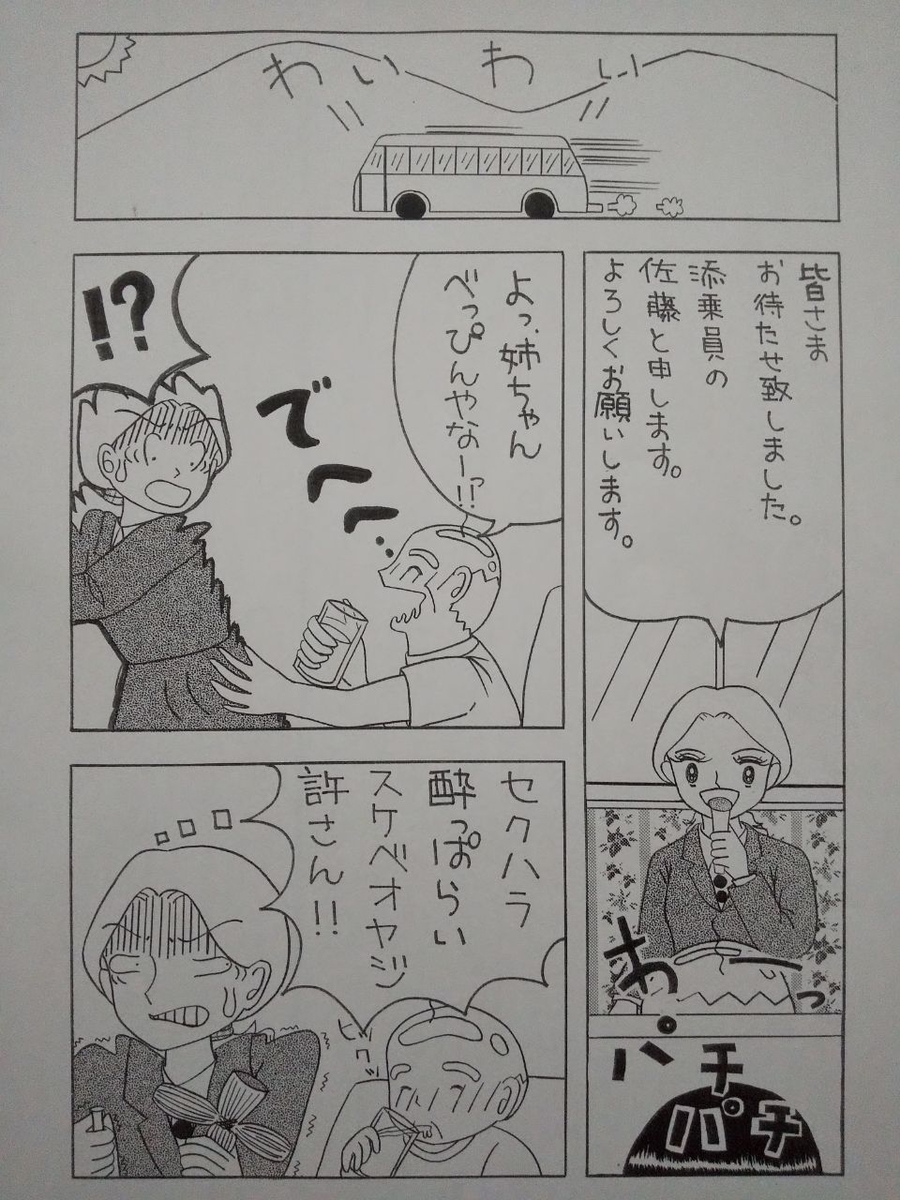 わいわい
皆さま
お待たせ致しました。
添乗員の
佐藤と申します。
よろしくお願いします。
わーっ
パチ
パチ
よっ、姉ちゃん
べっぴんやなー!?
でへへ…
!?
セクハラ
酔っぱらい
スケベオヤジ
許さん!!